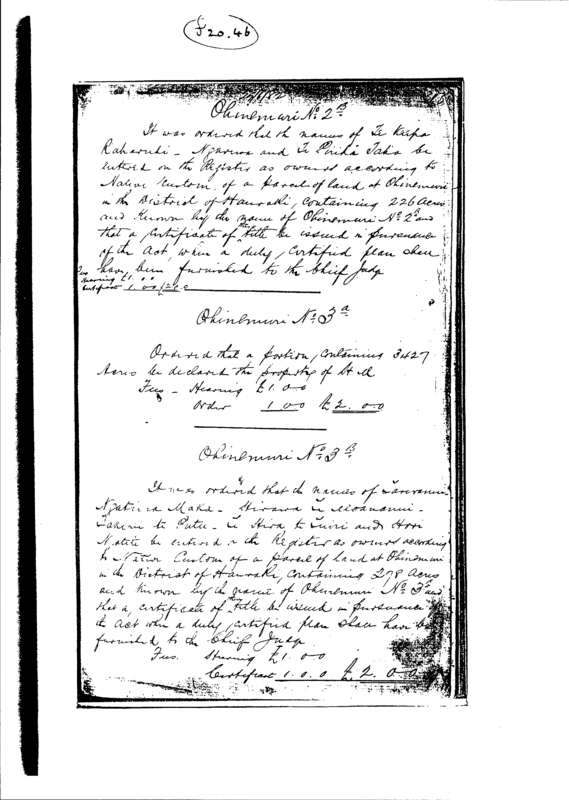 F 20.46
Ohinemuri No 2B
It was ordered that the names of Te Keepa
Raharuhi - Ngariwa and Te Piriha Taha be
entered on the Register as owners according to
Native Custom of a parcel of land at Ohinemuri
in the District of Hauraki, containing 226 Acres
and known by the name of Ohinemuri No 2B and
that a certificate of the title be issued in pursuance
of the Act, when a duly certified plan shall
have been furnished to the Chief Judge
Fees
Hearing £1.00
Certificate 1.00
Ohinemuri No 3a
Ordered that a portion, containing 3427
Acres be declared the property of H M
Fees - Hearing £1.00
Order 1 00 £2.00
Ohinemuri No 3B
It was ordered that the names of
Ngatiwa Maka - Hirawa Te Moananui -
te Putu - Te Hira te Tuiri and Hori
be entered on the Register as owners according
to Native Custom of a parcel of land at Ohinemuri
in the District of Hauraki, containing 278 Acres
and known by the name of Ohinemuri No 3B and
that a certificate of the title be issued in pursuance of
the Act when a duly certified plan shall have been
furnished to the Chief Judge
Fees. Hearing £1.00
Certificate 1.0.0 £2.0.0